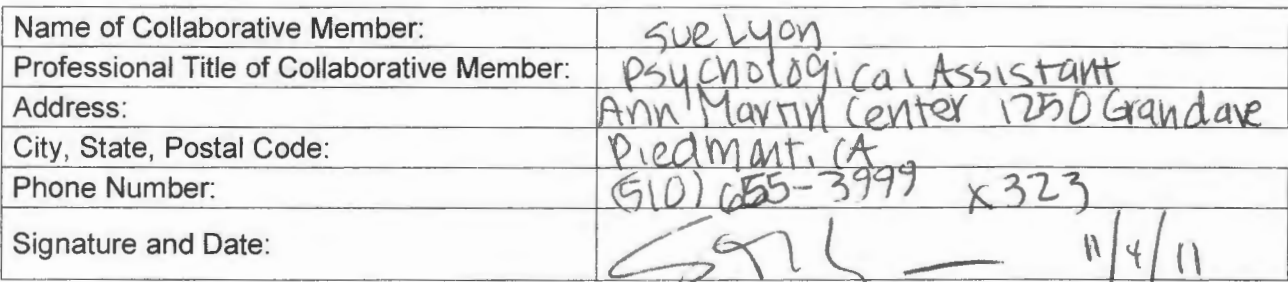 Name of Collaborative Member: Sue Lyon
Professional Title of Collaborative Member: Psychological Assistant
Address: Ann Martin Center 1250 Grand ave
City, State, Postal Code: Piedmont, CA
Phone Number: (510) 655-3999 x323
Signature and Date: 11/4/11